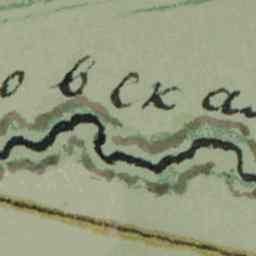 овска